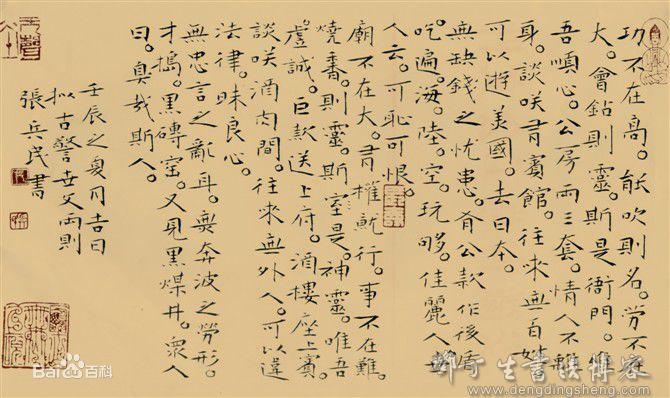 功不在高。能吹則名。学不在
大。會鉆則靈。斯是衙門。惟
吾順心。公房兩三套。情人不離
身。談咲有賓館。往來無白
可以遊美國。去日本。
無缺錢之忧患。有公款作後盾
吃遍。海。陸。空。玩够。佳麗人
人云。可恥可恨。
廟不在大。有權就行。事不在難。
燒香。則靈。斯室是。神靈。唯吾
虔誠。巨款送上府。酒樓座上賓。
談咲酒肉間。往來無外人。可以違
法律。昧良心。
無忠言之亂耳。無奔波之勞形。
才搗。黑磚窑。又見黑煤井。衆人
曰。臭哉斯人。
壬辰之夏月吉日
拟古警世文兩則
張兵民書
Bai百科
鄧奇生書法博客
www.dengdingsheng.com